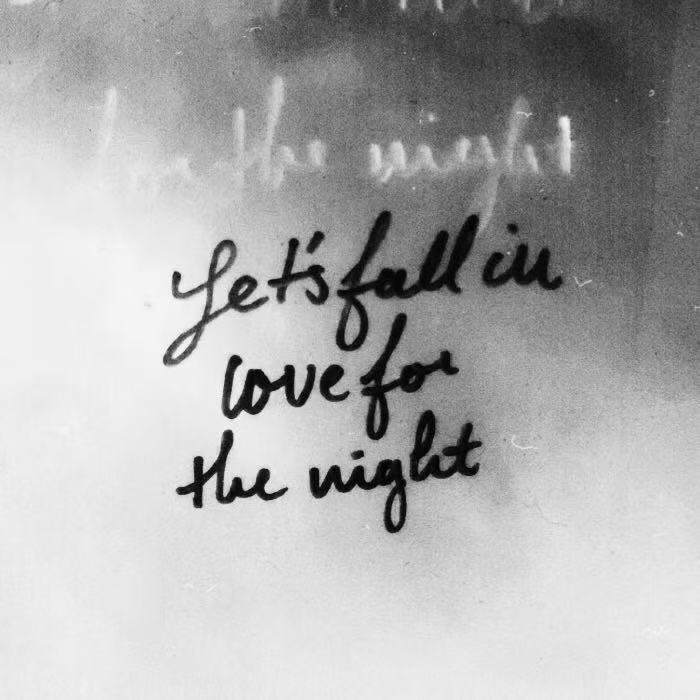 the night
Let's fall in
love for
the night